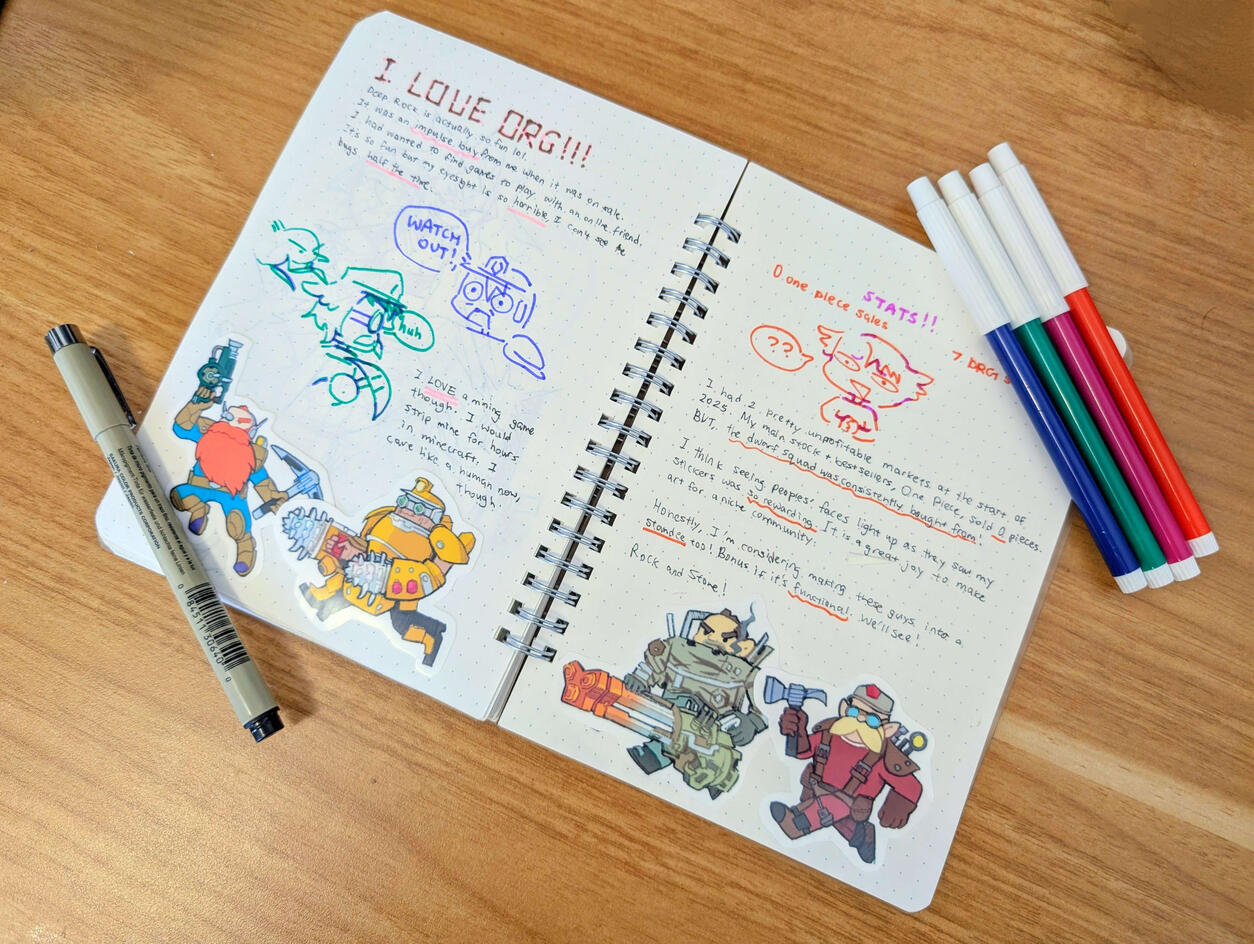 I LOVE DRG!!!
Deep Rock is actually so fun lol.
It was an impulse buy from me when it was on sale.
I had wanted to find games to play with an online friend.
It's so fun but my eyesight is so horrible, I can't see the
bugs half the time.
WATCH
OUT!
huh
I LOVE a mining game
though. I would
strip mine for hours
in minecraft. I
cave like a human now,
though.
STATS!!
0 one piece sales
??
7 DRG S
I had 2 pretty unprofitable markets at the start of
2025. My main stock + bestsellers, One Piece, sold 0 pieces.
BUT, the dwarf squad was consistently bought from!
I think seeing peoples' faces light up as they saw my
stickers was so rewarding. It is a great joy to make
art for a niche community.
Honestly, I'm considering making these guys into a
standee too! Bonus if it's functional. We'll see!
Rock and Stone!
SAKURA COLOR PRODUCTS CORPORATION
0 84511 30640 0